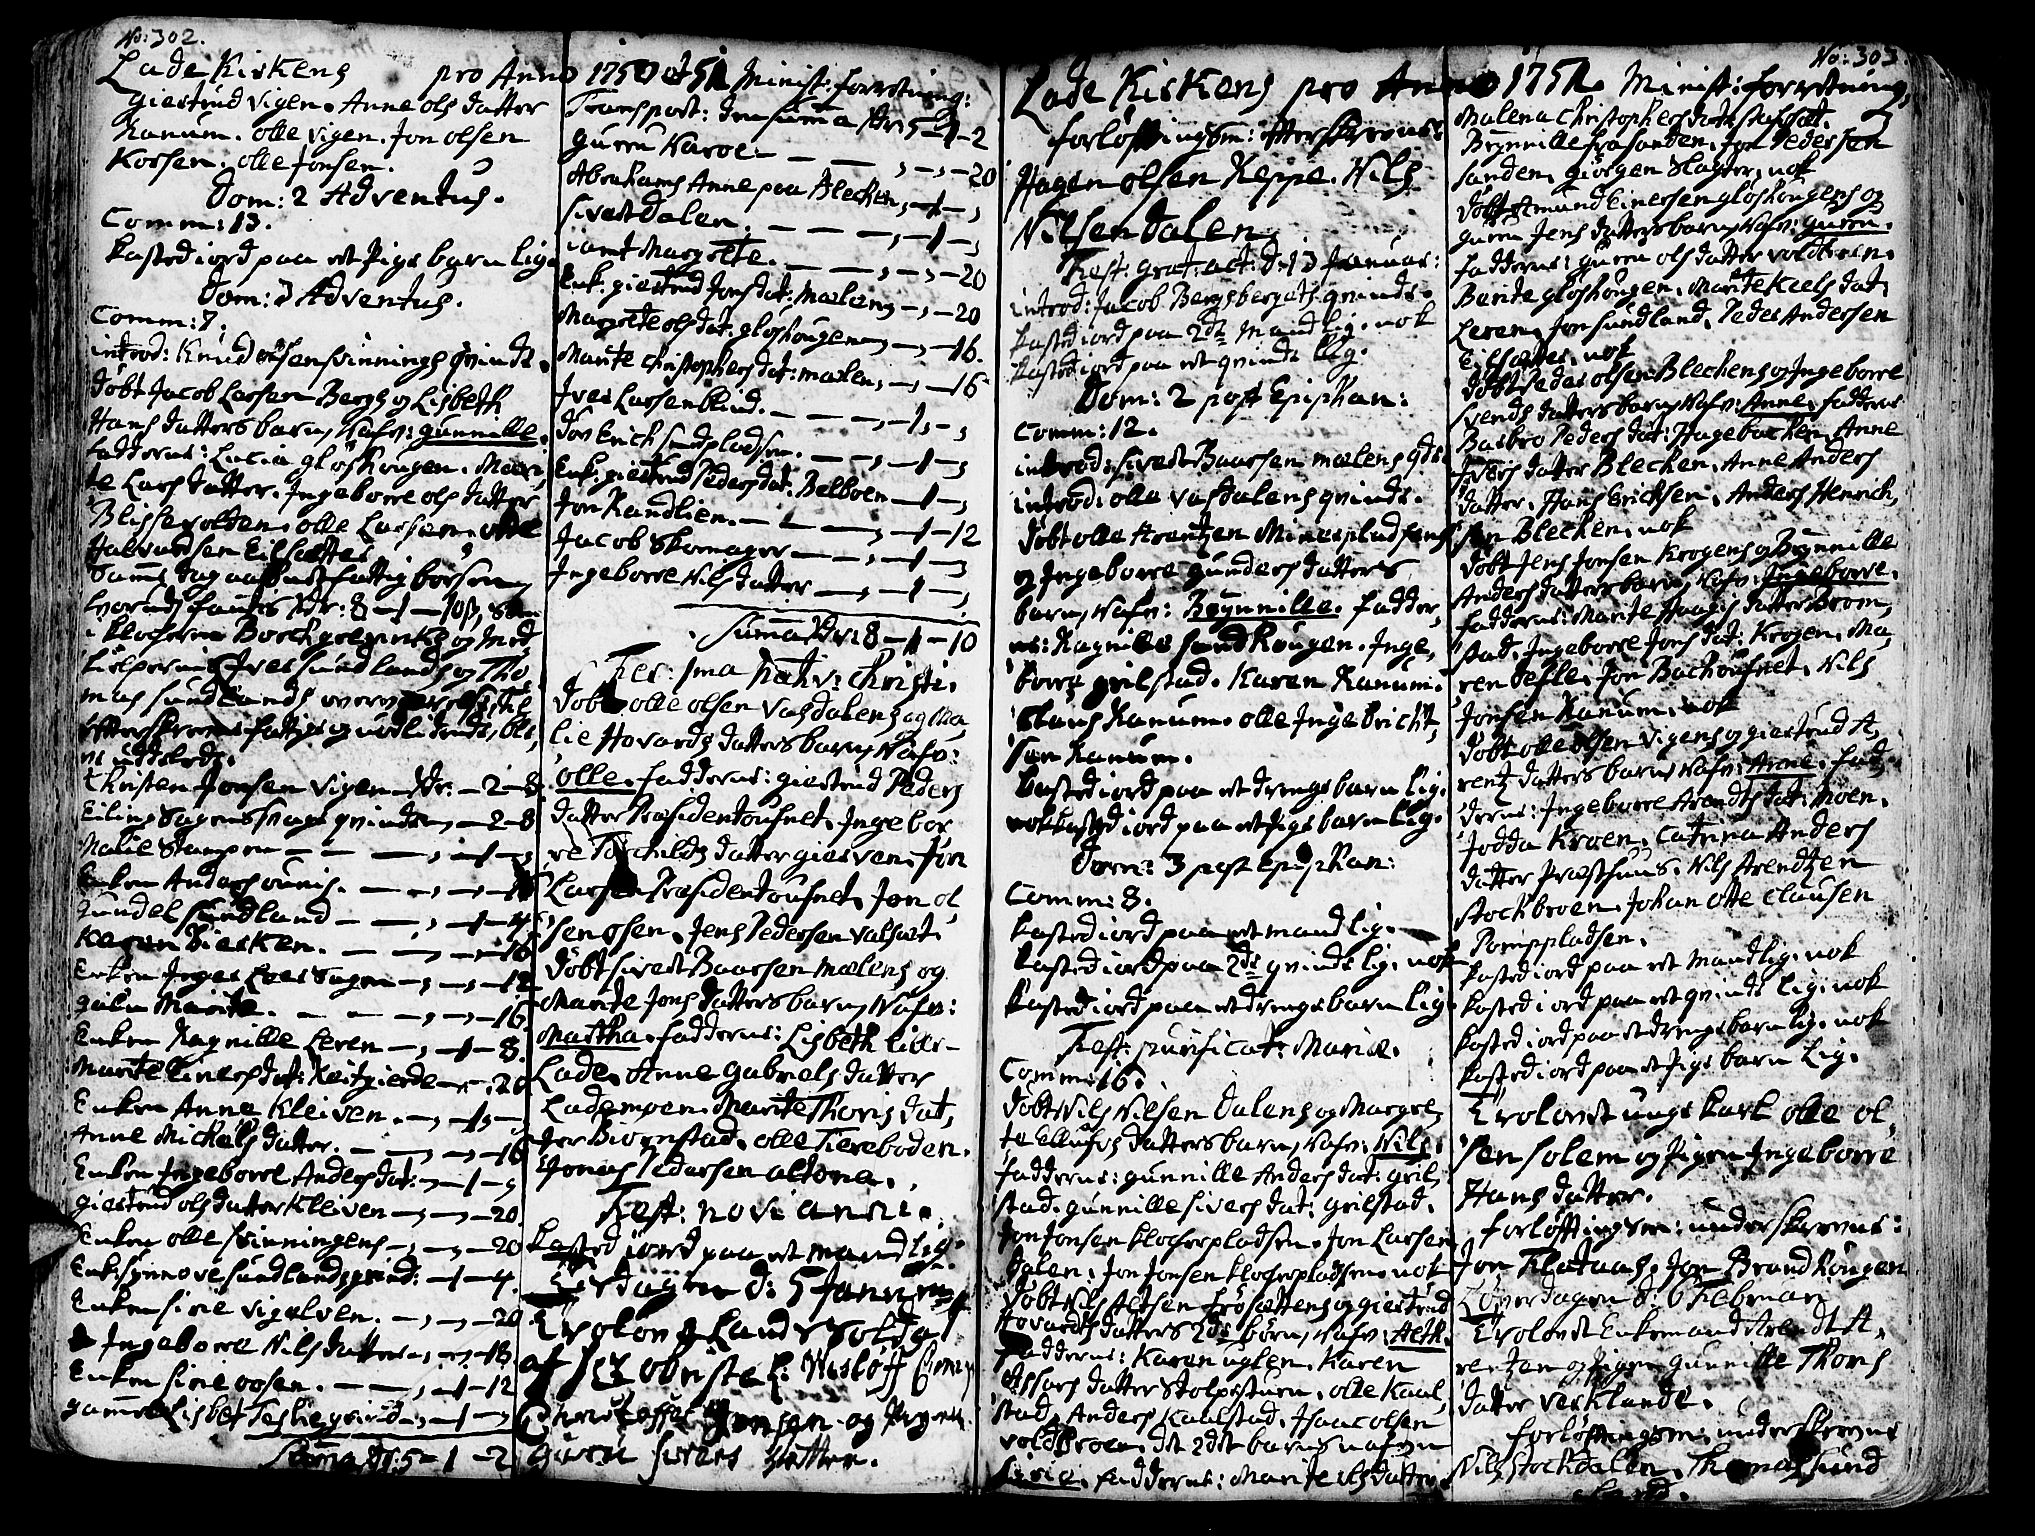 No: 302.
Lade Kirkens pro Anno 1750 et 51 Minist: forretning:
Giertrud Vigen. Anne Ols datter
Ranum. Olle Vigen. Jon Olsen
Korsen. Olle Jonsen.
Dom: 2 Adventus.
Comm: 13.
Kasted iord paa et Pige barn lig.
Dom: 3 Adventus.
Comm: 7.
introd: Knud Olsen Svinnings qvinde.
Døbt Jacob Larsen Bergs og Lisbeth
Hans datters barn, Nafn: Gunnille.
Fadderne: Lucia Gløshougen. Mari,
te Lars datter. Ingeborre Ols datter
Blissevolden. Olle Larsen. Olle
Halvorsen Eilsætter
Samme dag aabnet fattig børsen,
hvorudj fantis Rdr: 8-1-10ß, som
i klocheren Borchgrevinks og Med
hielperne Iver Sundlands og Tho
mas Sundlands overværelse til
efterskrevne fattige og nødlidende, ble,
ve uddeelede.
Christen Jonsen Vigen Rdr: - 2 - 8.
Eiling qvinde - 2 - 8
Malie Stampen - 1 -
Enken Anders
Gundel Sundland - 1 - 4
Karen Bierken. - 16
Enken Inger Leersagen - 12
Marite. - 16
Enken Ragnille Leren - 1 - 8.
Marite Einersdat: Reitgierdet - 20
Enken Anne Kleiven. - 1 -
Anne Michels datter. - 16
Enken Ingeborre Andersdat: - 1 -
Giertrud Ols datter Kleiven - 20.
Enken Olle Svinningens - 20
Enk: Synnove Sundlands qvind: - 1 - 4.
Enken Sirie Vigelven. - 20
Ingeborre Nils datter - 16.
Enken Sirie Oosen. - 1 - 12
Gammel Lisbet - 1 -
Summa Rdr: 5 - 1 - 2
Transport: den Summa Rdr: 5 - 1 - 2
Guru Karoe - 20
Abrahams Anne paa Blecken, - 1 -
Sivert Dalen. - 1 -
iamt Margrette. - 20
Enk: Giertrud Jonsdat: Mælen - 20
Margrette Olsdat: Gløshougen - 16.
Marite Christophersdat: Mælen, - 16
Iver Larsen blind. - 1 -
Døv Erich Sundpladsen. - 1 -
Enk: Giertrud Pedersdat: Belboen - 1 -
Jon Randlien. - 1 - 12
Jacob Skomager - 1 -
Ingeborre Nils datter - 1 -
Summa Rdr: 8 - 1 - 10
Fer: 1ma Nativ: Christi.
Døbt Olle Olsen Vasdalens og Ma,
lie Hovards datters barn, Nafn:
Olle. Fadderne: Giertrud Peders
datter Præsidentousnet. Ingebor
re Torchilds datter Giesven. Jon
Larsen Præsidentousnet. Jon Ol
sen Osen. Jens Pedersen Valset.
Døbt Sivert Baarsen Mælens og
Marite Jons datters barn, Nafn:
Martha. Fadderne: Lisbeth Lille-
Lade. Anne Gabriels datter
Lademoen. Marite Thoris dat,
ter Biørnstad. Olle Fiereboden.
Jonas Pedersen Altona.
Fest: novi anni.
Kasted iord paa et mand lig.
Tirdagen d: 5 Januarij
Trolovg Land Soldat
af Hr Obriste L: Wisløff Comp:
Christoffer Jensen og Pigen
Guru Sivers datter.
No: 303.
Lade Kirkens pro Anno 1751. Minist: forretning,
forløftingsm: efterskrevne:
Hagen Olsen Reppe. Nils
Nilsen Dalen.
Fest: grat: act: d: 13 Januar:
introd: Jacob Bergsbergets qvinde.
Kasted iord paa 2de mand lig. nok
kasted iord paa et qvinde lig.
Dom: 2 post Epiphan:
Comm: 12.
introd: Sivert Baarsen Mælens qde.
introd: Olle Vasdalens qvinde.
Døbt Olle Arentzen Minespladsens
og Ingeborre Gunders datters
barn, Nafn: Brynnille. Fadder,
ne: Ragnille Sundhougen. Inge,
borre Grilstad. Karen Ranum.
Claus Ranum. Olle Ingebricht,
sen Ranum.
Kasted iord paa et drenge barn lig.
nok kasted iord paa et Pige barn lig.
Dom: 3 post Epiphan:
Comm: 8.
Kasted iord paa et mand lig.
Kasted iord paa 2de qvinde lig. nok
kasted iord paa et drenge barn lig.
Fest: purificat: Mariæ.
Comm: 16.
Døbt Nils Nilsen Dalens og Margret,
te Ellufs datters barn, Nafn: Nils.
Fadderne: Gunnille Andersdat: Gril,
stad. Gunnille Siversdat: Grilstad.
Jon Jonsen Klocherpladsen. Jon Larsen
Dalen. Jon Jonsen Klocherpladsen. nok
Døbt Nils Altsen Frøsettens og Giertrud
Hovards datters 2de børn, Nafn: Aeth.
Fadderne: Karen Uglen. Karen
Assers datter Stolpestuen. Olle Kaal,
stad. Anders Kaalstad. Isaac Olsen
Voldbroen. Det 2det barns nafn
Sirie. Fadderne: Marite Olsdatter
Malena Christophersdatter Stafset.
Brynnille fra Sanden. Jon Pedersen
Sanden. Giørgen Slagter. nok
Døbt Amund Einersen Gløshougens og
Guru Jens datters barn, Nafn: Guru.
Fadderne: Guru Ols datter Voldbroen.
Berite Gløshougen. Marite Kielsdat:
Leren. Jon Sundland. Peder Andersen
Eilsætter. nok
Døbt Peder Olsen Bleckens og Ingeborre
Svends datters barn, Nafn: Anne. Fadderne
Barbro Pedersdat: Hagebacken. Anne
Ivers datter Blecken. Anne Anders
datter. Hans Erichsen. Anders Henrich,
sen Blecken. nok
Døbt Jens Jonsen Krogens og Brynnille
Anders datters barn, Nafn: Ingeborre.
Fadderne: Marite Haagis datter Brom,
stad. Ingeborre Jonsdat: Krogen. Ma,
ren Tesle. Jon Bachousnet. Nils
Jonsen Ranum. nok
Døbt Olle Olsen Vigens og Giertrud A,
rentz datters barn, Nafn: Arne. Fad,
derne: Ingeborre Arendtsdat: Moen.
Jodda Kroen. Catrina Anders
datter Præsthuus. Nils Arendtzen
Stockbroen. Johan Otte Clausen
Pomppladsen.
Kasted iord paa et mand lig. nok
kasted iord paa et qvinde lig. nok
kasted iord paa et drenge barn lig. nok
kasted iord paa et Pige barn lig.
Trolovet unge karl Olle Ol,
sen Solem og Pigen Ingeborre
Hans datter.
forløftingsm: underskrevne:
Jon Flataas. Jon Brandhougen
Løverdagen d: 6 Februari
Trolovet Enkemand Arendt A,
rentzen og Pigen Gunnille Thoms
datter Værklandt.
forløftingsm: underskrevne
Nils Stockdallen. Thomas Sund
land.